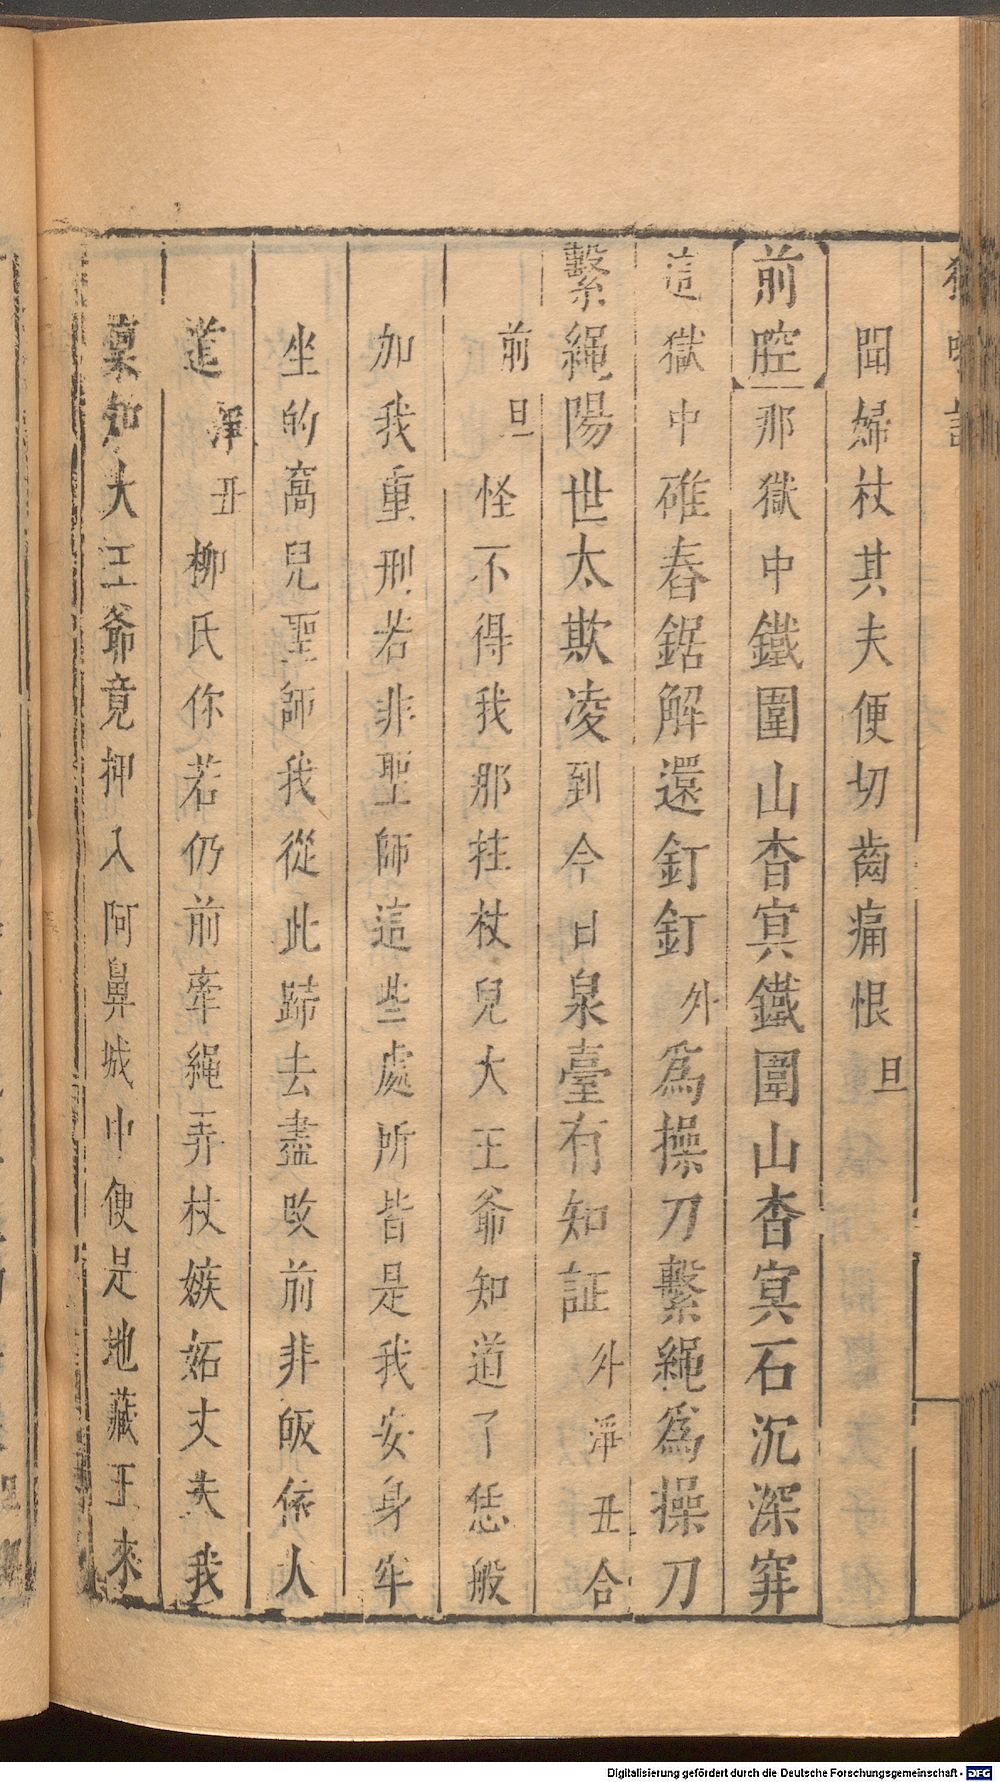 聞婦杖其夫便切齒痛恨旦
前腔那獄中鐵圍山杳冥鐵圍山杳冥石沉深穽
這獄中碓舂鋸解還釘釘外為操刀繫繩為操刀
繫繩陽世太欺凌到今日泉臺有知証外淨丑合
前旦怪不得我那拄杖兒大王爺知道了恁般
加我重刑若非聖師這些處所皆是我安身牢
坐的窩兒聖師我從此歸去盡改前非皈依人
道淨丑柳氏你若仍前牽繩弄杖嫉妬丈夫我
稟知大王爺竟押入阿鼻城中便是地藏王來
Digitalisierung gefördert durch die Deutsche Forschungsgemeinschaft - DFG